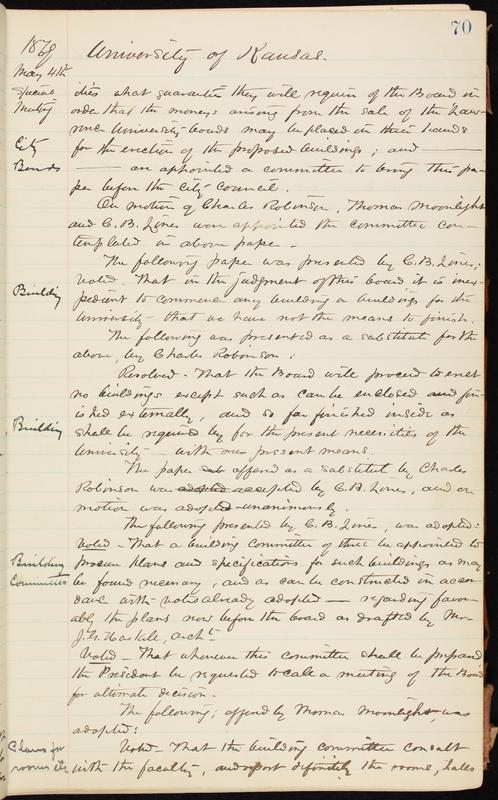 70
1869 University of Kansas.
May 4th
Special Meeting
City Bonds
ities what guarantee they will require of the Board in
order that the moneys arising from the sale of the Law-
rence University bonds may be placed in their hands
for the erection of the proposed buildings; and ———
—— are appointed a committee to bring this pa-
per before the City Council.
On motion of Charles Robinson, Thomas Moonlight
and C. B. Lines were appointed the committee con-
templated in above paper.
The following paper was presented by C. B. Lines;
Building
Voted - That in the judgment of this board it is inex-
pedient to commence any building or buildings for the
university - that we have not the means to finish.
The following was presented as a substitute for the
above, by Charles Robinson:
Resolved - That the Board will proceed to erect
no buildings except such as can be enclosed and fin-
ished externally, and so far finished inside as
Building
shall be required by for the present necessities of the
University - with our present means.
The paper offered as a substitute by Charles
Robinson was adopted accepted by C. B. Lines, and on
motion was adopted unanimously.
The following presented by C. B. Lines, was adopted:
Voted - That a building committee of three be appointed to
Building Committee
procure plans and specifications for such buildings as may
be found necessary, and as can be constructed in accor-
dance with votes already adopted — regarding favor-
ably the plans now before the board as drafted by Mr.
J. G. Haskell, archt.
Voted - That whenever this committee shall be prepared
the President be requested to call a meeting of the Board
for ultimate decision.
The following, offered by Thomas Moonlight, was
adopted:
Plans for rooms etc
Voted - That the building committee consult
with the faculty, and report definitely the rooms, halls